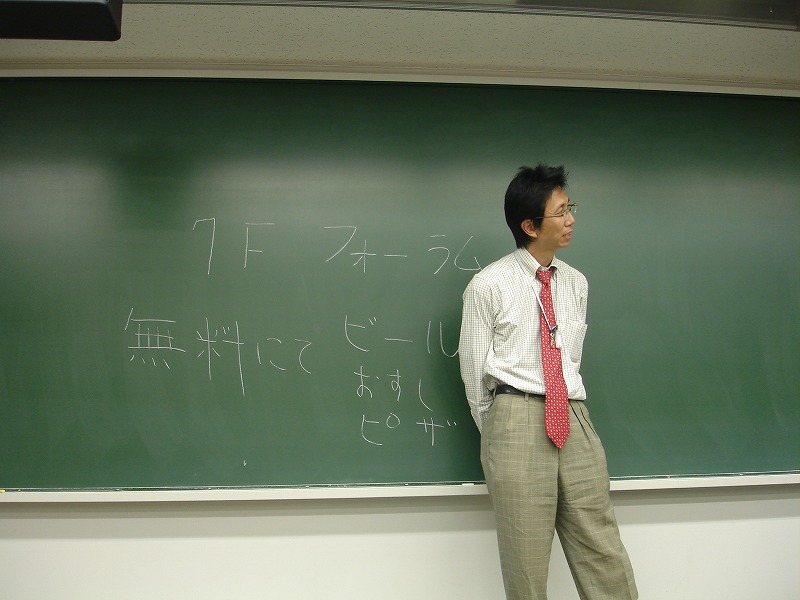 7F フォーラム
無料にて ビール
おすし
ピザ